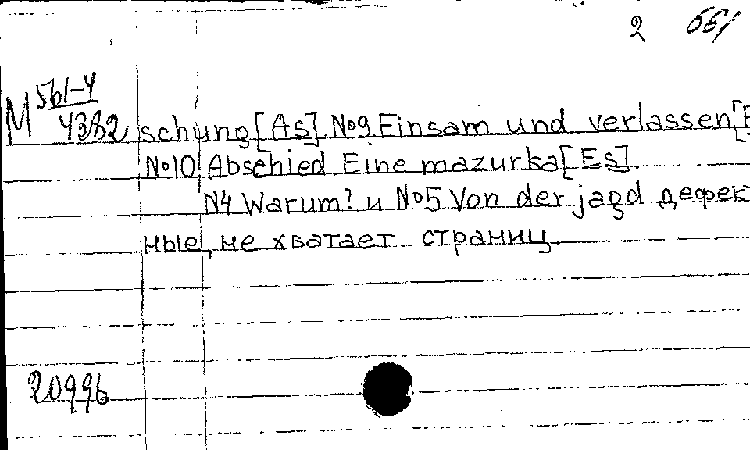 2 661
М 561-4
4382
schung [As], №9 Einsam und verlassen [E
№10 Abschied Eine mazurka [Es]
N4 Warum? и №5 Von der jagd дефек
ные, не хватает страниц
20996